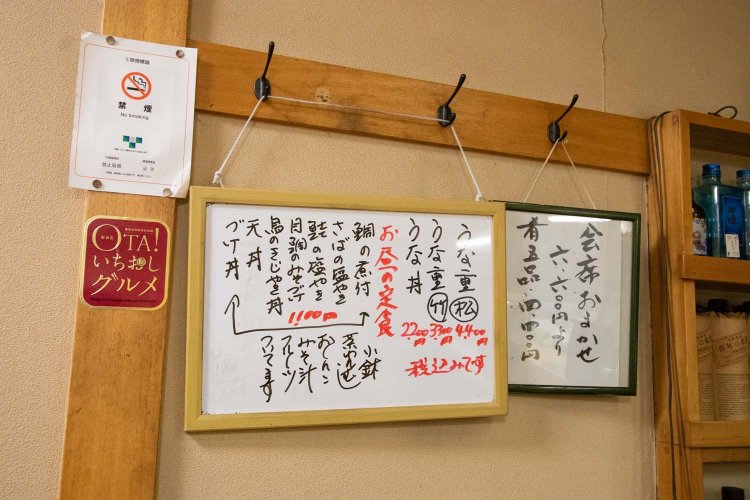 禁煙標識
禁煙
No Smoking
OTA!
いちおし
グルメ
うな重 松 4,400
うな重 竹 3300
うな丼 2200
税込みです
お昼の定食
鯛の煮付
さばの塩やき
鮭の塩やき
目鯛のみそづけ
鳥のきじやき丼
天丼
づけ丼
1,100円
小鉢
茶わんむし
おしんこ
みそ汁
フルーツ
ついてます
会席おまかせ
六.六00円より
肴五品.四.四00円